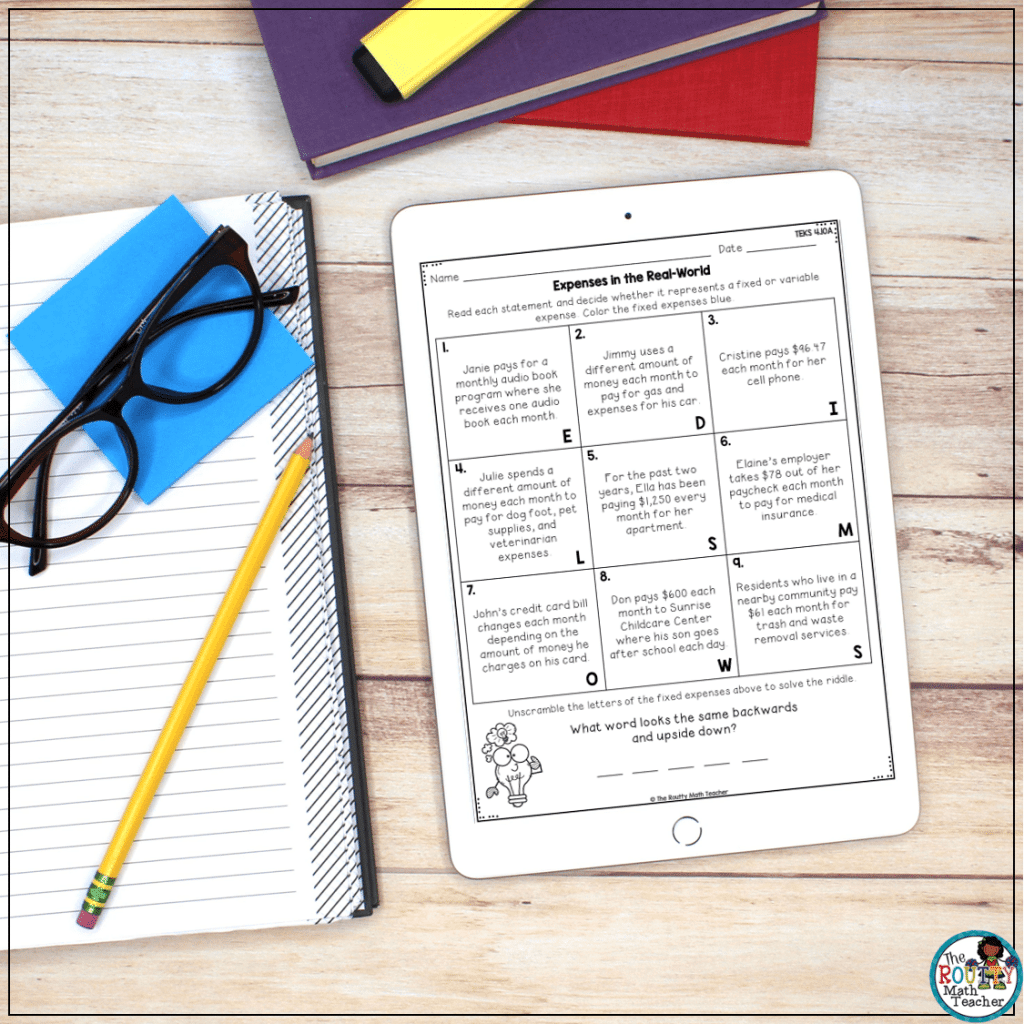 TEKS 4.10A
Name Date
Expenses in the Real-World
Read each statement and decide whether it represents a fixed or variable
expense. Color the fixed expenses blue.
1.
Janie pays for a
monthly audio book
program where she
receives one audio
book each month.
E
2.
Jimmy uses a
different amount of
money each month to
pay for gas and
expenses for his car.
D
3.
Cristine pays $96.47
each month for her
cell phone.
I
4.
Julie spends a
different amount of
money each month to
pay for dog foot, pet
supplies, and
veterinarian
expenses.
L
5.
For the past two
years, Ella has been
paying $1,250 every
month for her
apartment.
S
6.
Elaine's employer
takes $78 out of her
paycheck each month
to pay for medical
insurance.
M
7.
John's credit card bill
changes each month
depending on the
amount of money he
charges on his card.
O
8.
Don pays $600 each
month to Sunrise
Childcare Center
where his son goes
after school each day.
W
9.
Residents who live in a
nearby community pay
$61 each month for
trash and waste
removal services.
S
Unscramble the letters of the fixed expenses above to solve the riddle.
What word looks the same backwards
and upside down?
© The Routty Math Teacher
The
ROUTTY
Math
Teacher